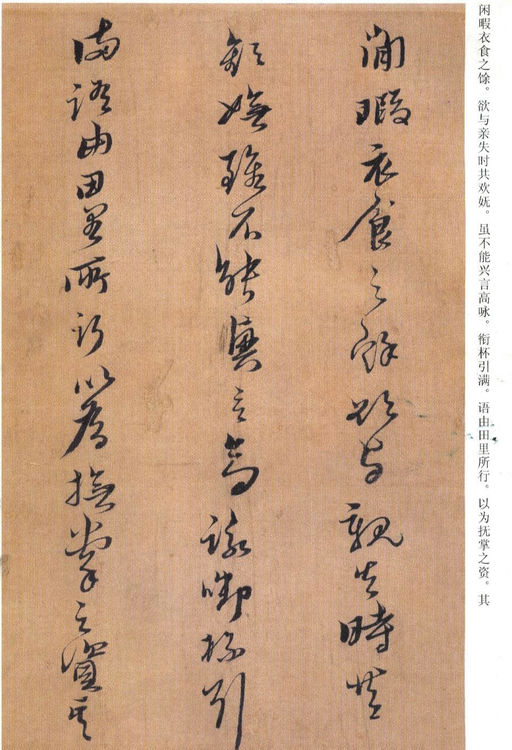 闲暇衣食之馀。欲与亲失时共欢妩。虽不能兴言高咏。衔杯引满。语由田里所行。以为抚掌之资。其
閒暇衣食之餘欲与親失時共
歡嫵雖不能興言高詠啣杯引
滿語由田里所行以為撫掌之資其